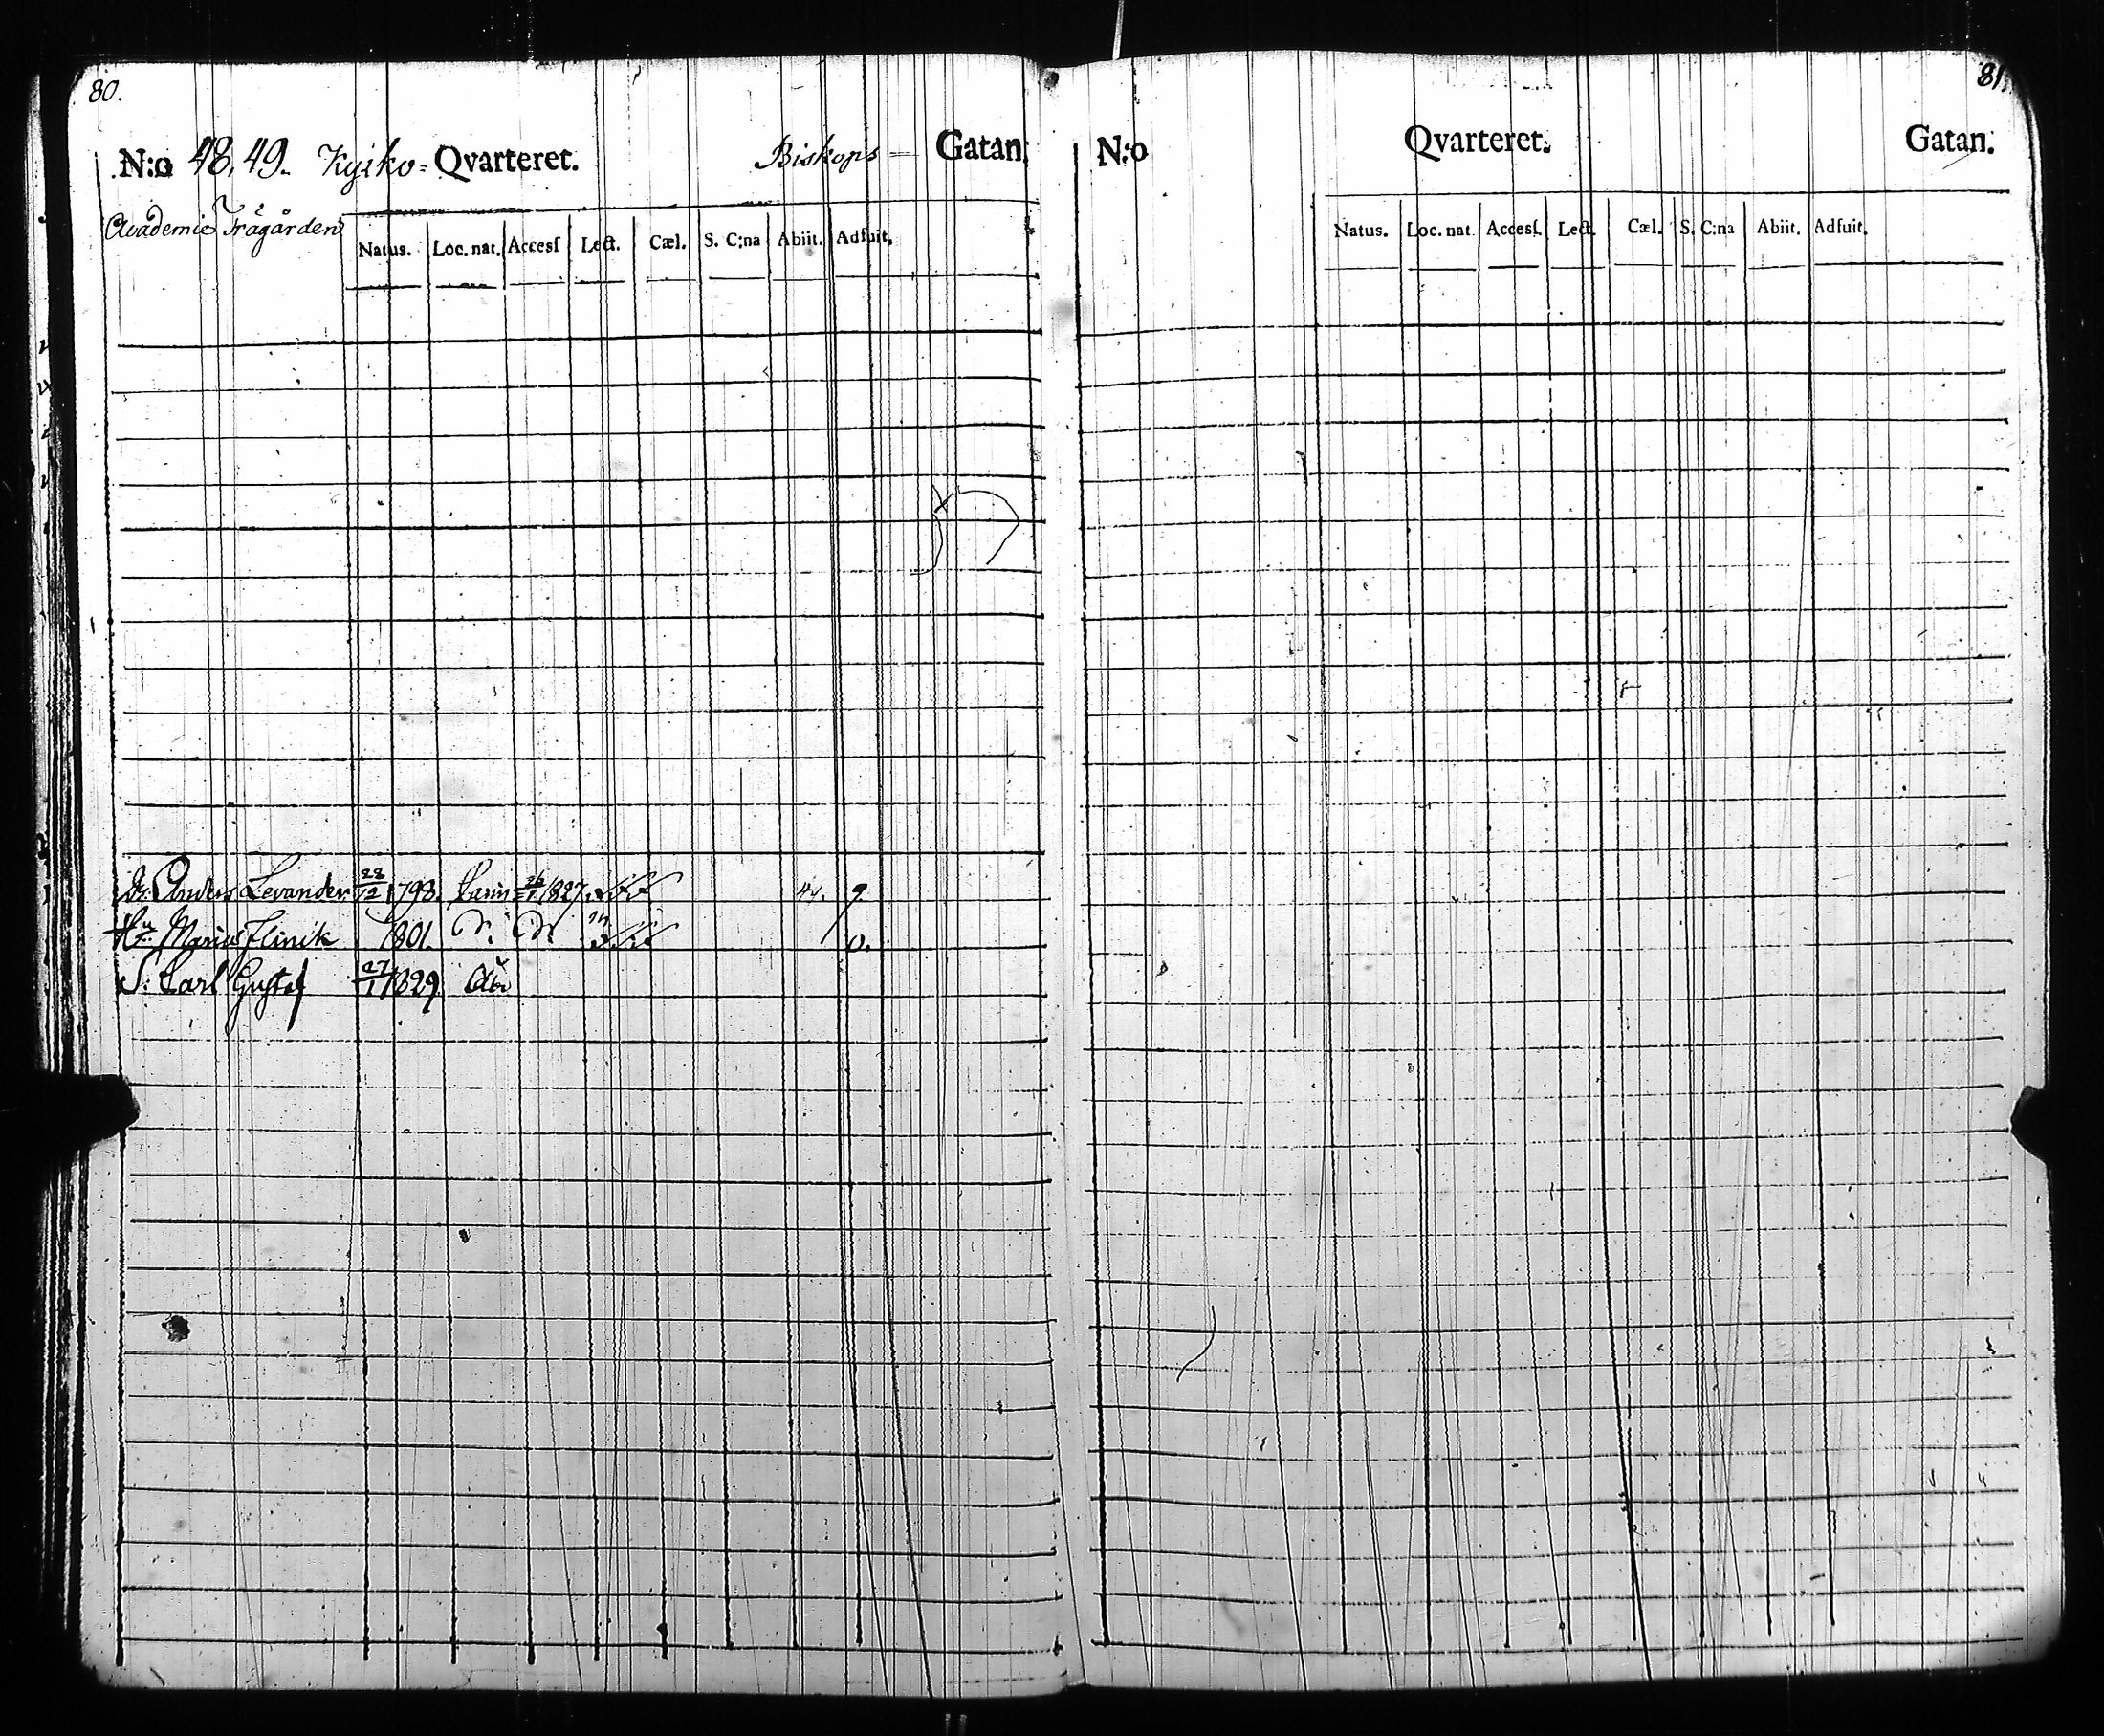 80.
N:o 48, 49. Kyrko= Qvarteret. Biskops= Gatan.
Academie Trägården
Natus. Loc. nat. Accesſ Lect. Cæl. S. C:na Abiit. Adfuit.
Anders Levander 28/12 1793. 1827.
Hu Maria Flinik 1801. D: D:
S: Carl Gustaf 27/1 1829. Åbo
81.
N:o Qvarteret. Gatan.
Natus. Loc. nat. Accesſ. Lect. Cæl. S. C:na Abiit. Adfuit.